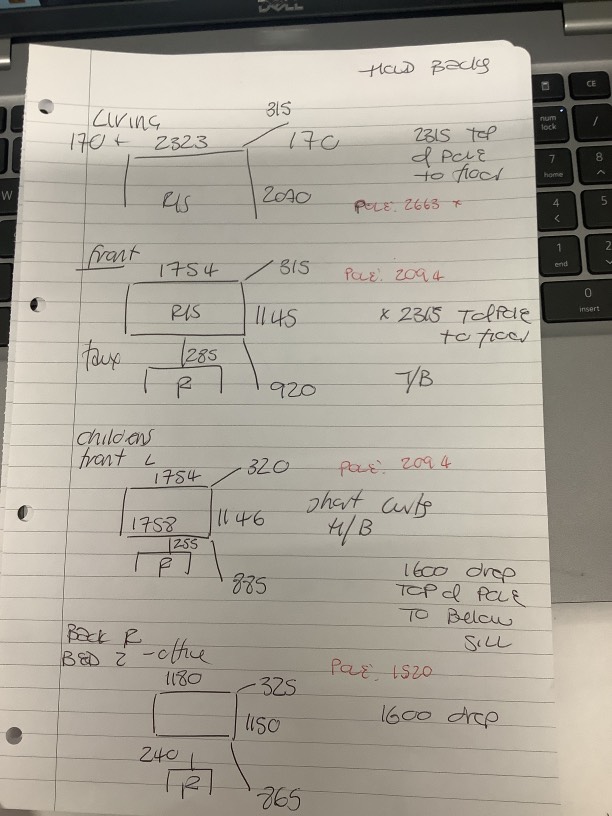 DELL
HOLD BACKS
Living
315
170 + 2323 170
2315 TOP
of POLE
to floor
R/S 2090
POLE: 2663 *
front
1754 315
POLE: 2094
R/S 1145
x 2315 TOP POLE
to floor
faux 285
R 920
T/B
Childens
front L
1754 320
POLE: 2094
1758 1146
short curts
H/B
255
R 885
1600 drop
TOP of POLE
TO Below
SILL
Back R
BED 2 - office
1180 325
POLE: 1520
1150
1600 drop
240
R 865
CE
num
lock
/
7
home
8
4
5
1
end
2
0
insert
W